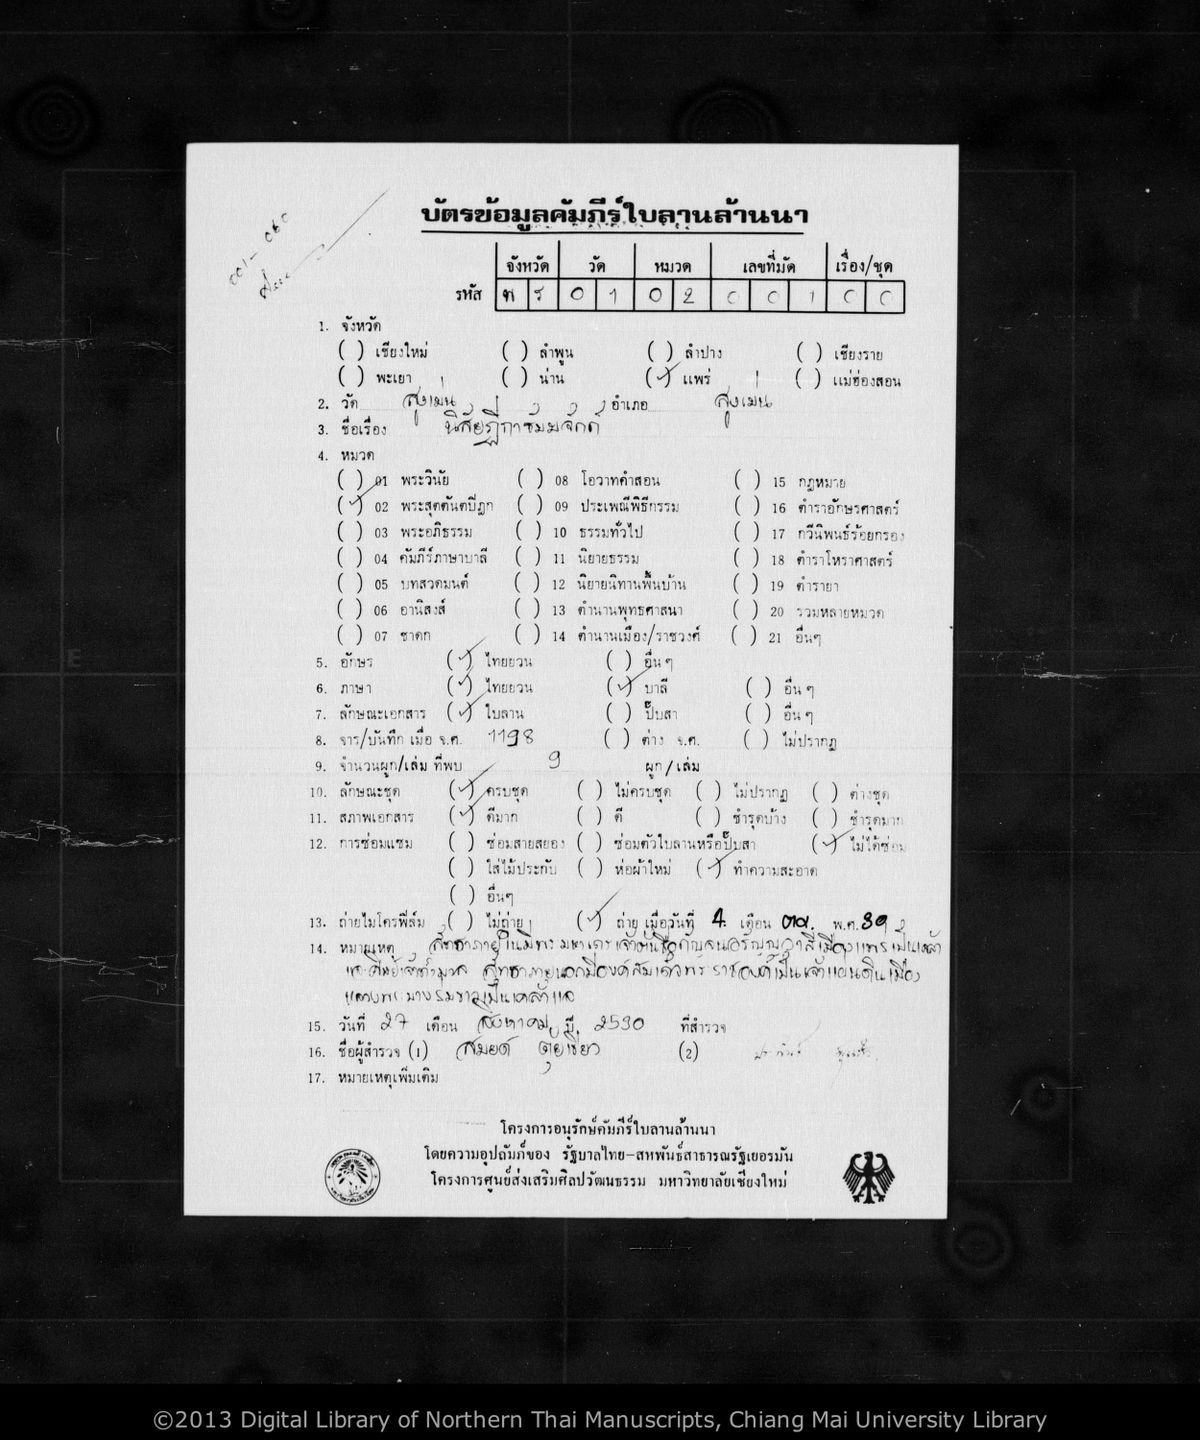 001-060
บัตรข้อมูลคัมภีร์ใบลานล้านนา
จังหวัด วัด หมวด เลขที่มัด เรื่อง/ชุด
รหัส พ ร 0 1 0 2 0 0 1 0 0
1. จังหวัด
( ) เชียงใหม่ ( ) ลำพูน ( ) ลำปาง ( ) เชียงราย
( ) พะเยา ( ) น่าน (✓) แพร่ ( ) แม่ฮ่องสอน
2. วัด สูงเม่น อำเภอ สูงเม่น
3. ชื่อเรื่อง นิสัยฎีกาธัมมจักก์
4. หมวด
( ) 01 พระวินัย ( ) 08 โอวาทคำสอน ( ) 15 กฎหมาย
(✓) 02 พระสุตตันตปิฎก ( ) 09 ประเพณีพิธีกรรม ( ) 16 ตำราอักษรศาสตร์
( ) 03 พระอภิธรรม ( ) 10 ธรรมทั่วไป ( ) 17 กวีนิพนธ์ร้อยกรอง
( ) 04 คัมภีร์ภาษาบาลี ( ) 11 นิยายธรรม ( ) 18 ตำราโหราศาสตร์
( ) 05 บทสวดมนต์ ( ) 12 นิยายนิทานพื้นบ้าน ( ) 19 ตำรายา
( ) 06 อานิสงส์ ( ) 13 ตำนานพุทธศาสนา ( ) 20 รวมหลายหมวด
( ) 07 ชาดก ( ) 14 ตำนานเมือง/ราชวงศ์ ( ) 21 อื่นๆ
5. อักษร (✓) ไทยยวน ( ) อื่น ๆ
6. ภาษา (✓) ไทยยวน (✓) บาลี ( ) อื่น ๆ
7. ลักษณะเอกสาร (✓) ใบลาน ( ) ปั๊บสา ( ) อื่น ๆ
8. จาร/บันทึก เมื่อ จ.ศ. 1198 ( ) ต่าง จ.ศ. ( ) ไม่ปรากฏ
9. จำนวนผูก/เล่ม ที่พบ 9 ผูก/เล่ม
10. ลักษณะชุด (✓) ครบชุด ( ) ไม่ครบชุด ( ) ไม่ปรากฏ ( ) ต่างชุด
11. สภาพเอกสาร (✓) ดีมาก ( ) ดี ( ) ชำรุดบ้าง ( ) ชำรุดมาก
12. การซ่อมแซม ( ) ซ่อมสายสยอง ( ) ซ่อมตัวใบลานหรือปั๊บสา (✓) ไม่ได้ซ่อม
( ) ใส่ไม้ประกับ ( ) ห่อผ้าใหม่ (✓) ทำความสะอาด
( ) อื่นๆ
13. ถ่ายไมโครฟิล์ม ( ) ไม่ถ่าย (✓) ถ่าย เมื่อวันที่ 4 เดือน ตค. พ.ศ. 30
14. หมายเหตุ สัทธาภายในมีพระมหาเถรเจ้าตนชื่อกัญจนอรัญญวาสีเมืองแพร่เป็นเคล้า
และศิษย์เจ้าทั้งมวล สัทธาภายนอกมีองค์สมเด็จพระราชองค์เป็นเจ้าแผ่นดินเมือง
หลวงพระบางรมขาวเป็นเคล้าแล
15. วันที่ 27 เดือน สิงหาคม ปี 2530 ที่สำรวจ
16. ชื่อผู้สำรวจ (1) สมยศ (2)
17. หมายเหตุเพิ่มเติม
โครงการอนุรักษ์คัมภีร์ใบลานล้านนา
โดยความอุปถัมภ์ของ รัฐบาลไทย-สหพันธ์สาธารณรัฐเยอรมัน
โครงการศูนย์ส่งเสริมศิลปวัฒนธรรม มหาวิทยาลัยเชียงใหม่
©2013 Digital Library of Northern Thai Manuscripts, Chiang Mai University Library